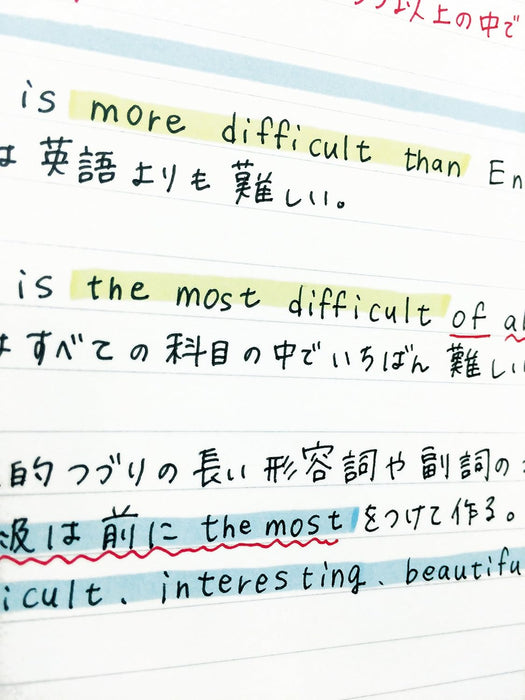 以上の中で
is more difficult than En
は 英語よりも 難しい。
is the most difficult of al
はすべての科目の中でいちばん 難しい
的つづりの長い形容詞や副詞の
級は 前に the most をつけて作る。
icult、interesting、beautifu